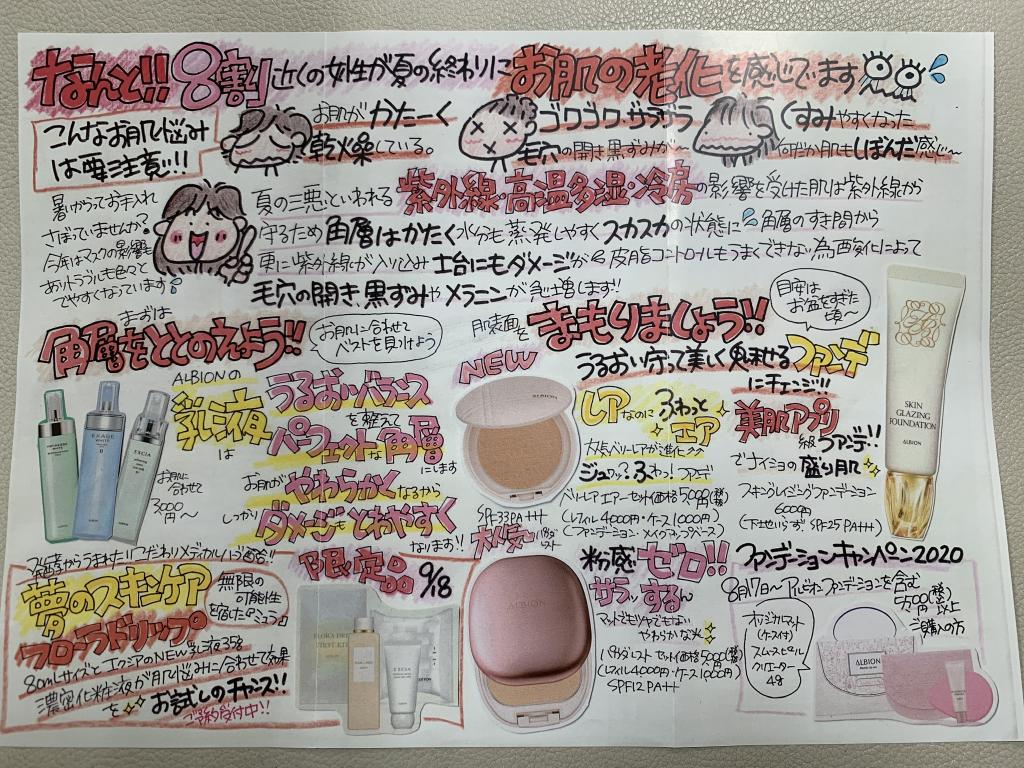 なんと!! 8割近くの女性が夏の終わりにお肌の老化を感じています
こんなお肌悩み
は要注意!!
お肌がかたーく
乾燥している。
ゴワゴワ・ザラザラ
毛穴の開き黒ずみが〜
くすみやすくなった
何だか肌もしぼんだ感じ〜
暑いからってお手入れ
さぼっていませんか?
今年はマスクの影響も
ありトラブルも色々と
でやすくなっています
夏の三悪といわれる紫外線・高温多湿・冷房の影響を受けた肌は紫外線から
守るため角層はかたく水分も蒸発しやすくスカスカの状態に 角層のすき間から
更に紫外線が入り込み土台にもダメージが 皮脂コントロールもうまくできない為酸化によって
毛穴の開き、黒ずみやメラニンが急増します!!
まずは
角層をととのえよう!!
お肌に合わせて
ベストを見つけよう
肌表面を
まもりましょう!!
目安は
お盆をすぎた
頃〜
ALBIONの
乳液は
うるおいバランス
を整えて
パーフェクトな角層
にします
お肌が
やわらかくなるから
しっかり
ダメージもとれやすく
なります!!
お肌に
合わせて
5000円〜
EXAGE
WHITE
EXCIA
NEW
ALBION
SPF33PA+++
うるおい守って美しく魅せるファンデ
にチェンジ!!
レアなのにふわっと
エア
大人気ベリーレアが進化
ジュワッ?ふわっ!ファンデ
ベリーレア エアー セット価格5000円(税抜)
(レフィル4000円・ケース1000円)
(ファンデーション・メイクアップベース)
美肌アプリ
級ファンデ!!
でナイショの盛り肌
スキングレイジングファンデーション
6000円
(下地いらず、SPF25PA+++)
SKIN
GLAZING
FOUNDATION
ALBION
大人気パウダレスト
ALBION
粉感ゼロ!!
サラッ、するん
マットでもツヤでもない
やわらかな光
パウダレスト セット価格5000円(税抜)
(レフィル4000円・ケース1000円)
SPF12 PA++
ファンデーションキャンペーン2020
8月7日〜アルビオンファンデーションを含む
(税抜)
以上
ご購入の方
オリジナルマット
(ケース付)
スムースピール
クリエーター
4g
ALBION
こだわりメディカルハーブ配合!!
夢のスキンケア
フローラドリップ
無限の
可能性
を宿した
限定品 9/18
乳液35g
80mlサイズとエクシアのNEW
濃密化粧液が肌悩みに合わせて効果
を お試しのチャンス!!
ご予約受付中!!
FLORA DRIP
EXCIA